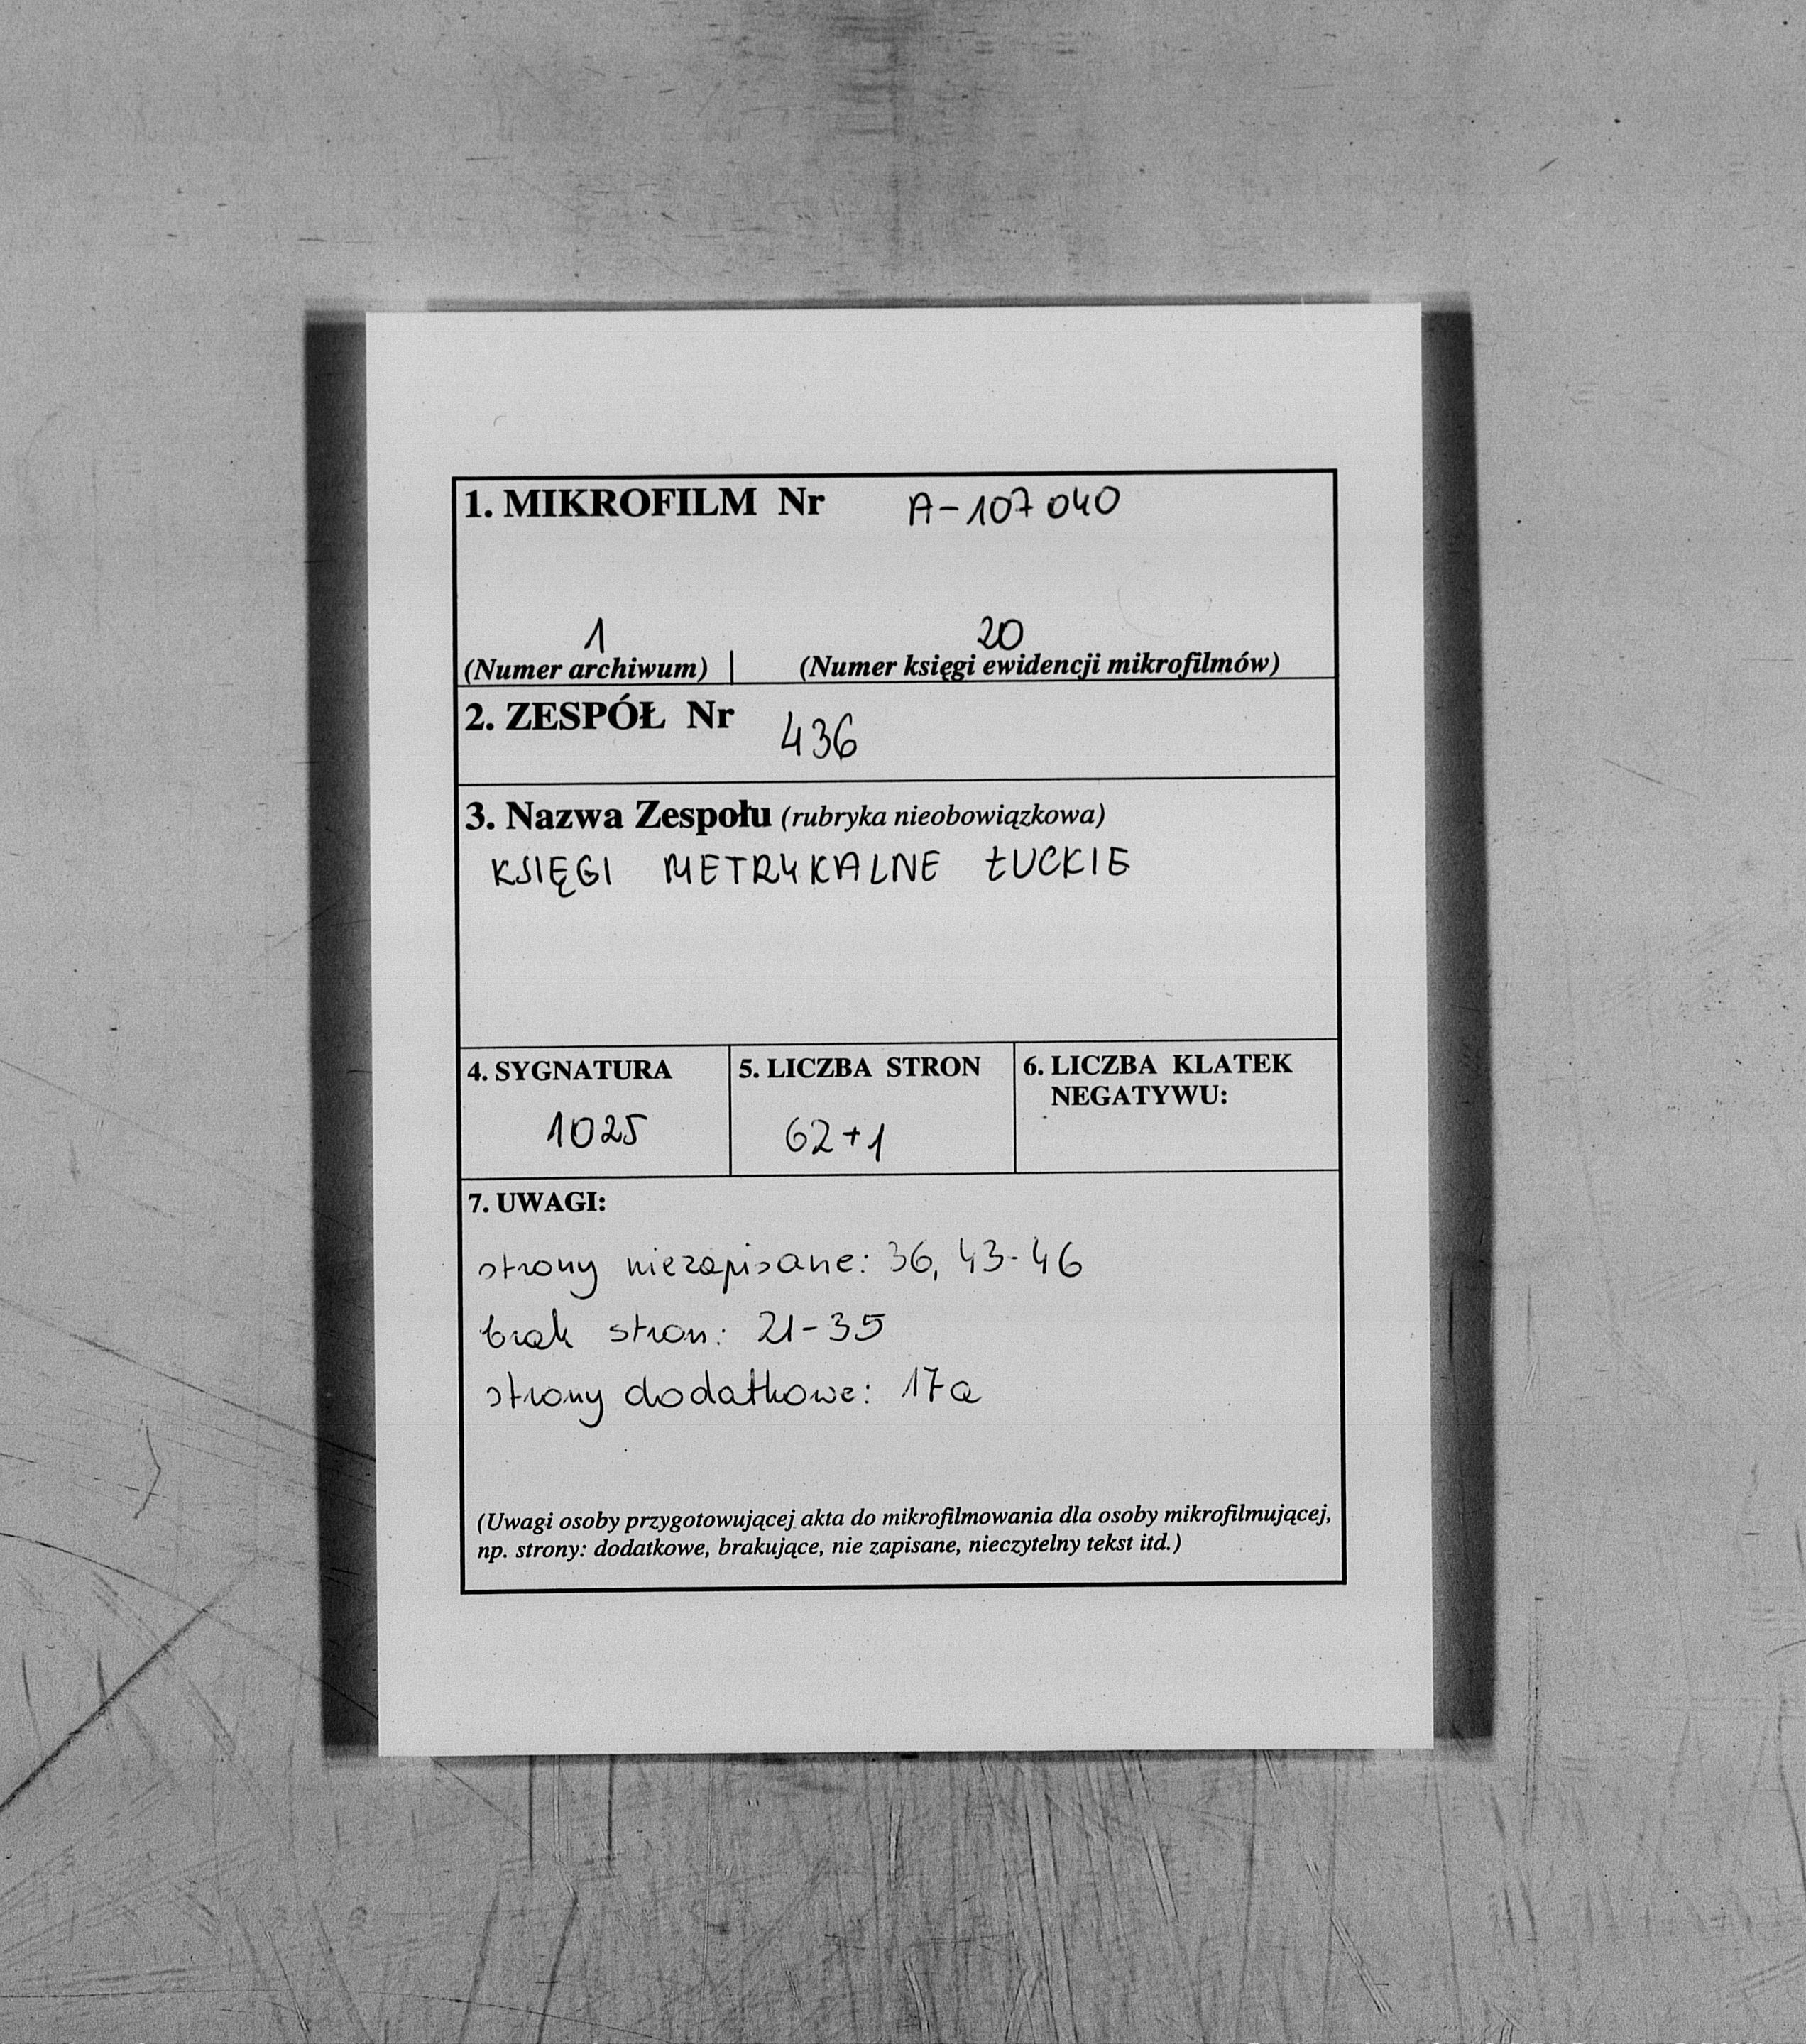 1. MIKROFILM Nr A-107 040
1 20
(Numer archiwum) | (Numer księgi ewidencji mikrofilmów)
2. ZESPÓŁ Nr 436
3. Nazwa Zespołu (rubryka nieobowiązkowa)
KSIĘGI METRYKALNE ŁUCKIE
4. SYGNATURA 5. LICZBA STRON 6. LICZBA KLATEK
NEGATYWU:
1025 62+1
7. UWAGI:
strony niezapisane: 36, 43-46
brak stron: 21-35
strony dodatkowe: 17a
(Uwagi osoby przygotowującej akta do mikrofilmowania dla osoby mikrofilmującej,
np. strony: dodatkowe, brakujące, nie zapisane, nieczytelny tekst itd.)